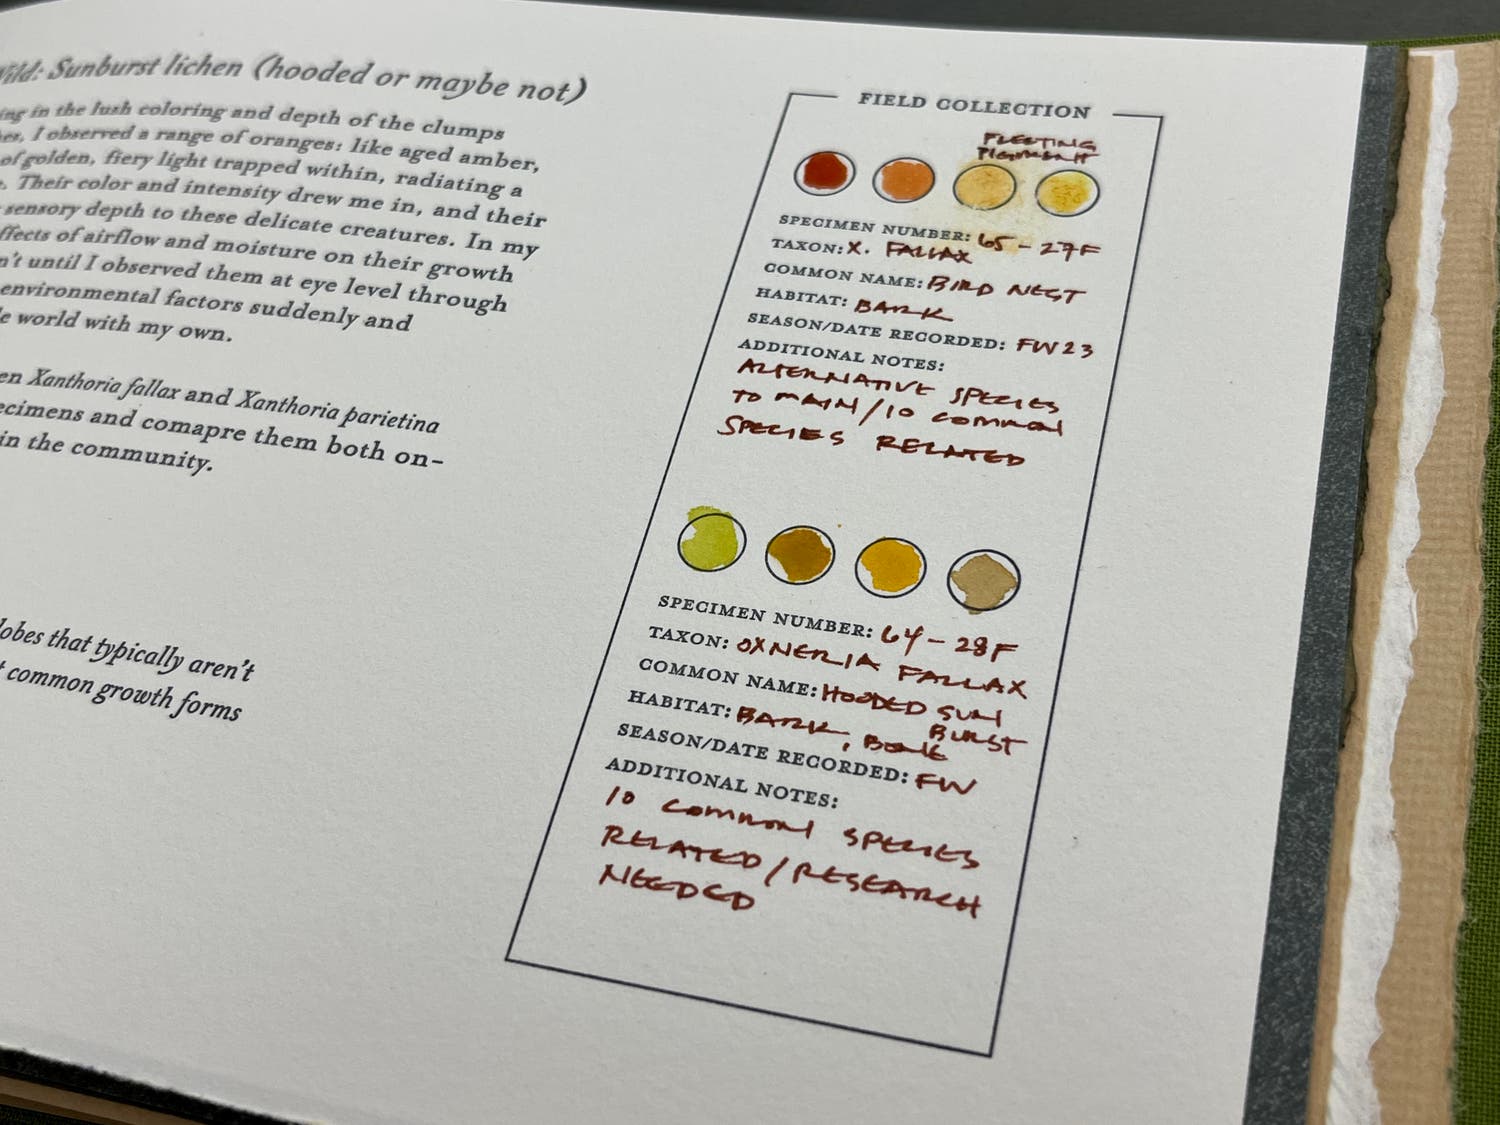 Wild: Sunburst lichen (hooded or maybe not)
in the lush coloring and depth of the clumps
I observed a range of oranges: like aged amber,
of golden, fiery light trapped within, radiating a
Their color and intensity drew me in, and their
sensory depth to these delicate creatures. In my
of airflow and moisture on their growth
until I observed them at eye level through
environmental factors suddenly and
world with my own.
Xanthoria fallax and Xanthoria parietina
and comapre them both on-
in the community.
that typically aren't
common growth forms
FIELD COLLECTION
FLEETING
PIGMENT
SPECIMEN NUMBER: 65-27F
TAXON: X. FALLAX
COMMON NAME: BIRD NEST
HABITAT: BARK
SEASON/DATE RECORDED: FW23
ADDITIONAL NOTES:
ALTERNATIVE SPECIES
TO MAIN/10 COMMON
SPECIES RELATED
SPECIMEN NUMBER: 64-28F
TAXON: OXNERIA FALLAX
COMMON NAME: HOODED SUN
BURST
HABITAT: BARK, BONE
SEASON/DATE RECORDED: FW
ADDITIONAL NOTES:
10 COMMON SPECIES
RELATED/RESEARCH
NEEDED